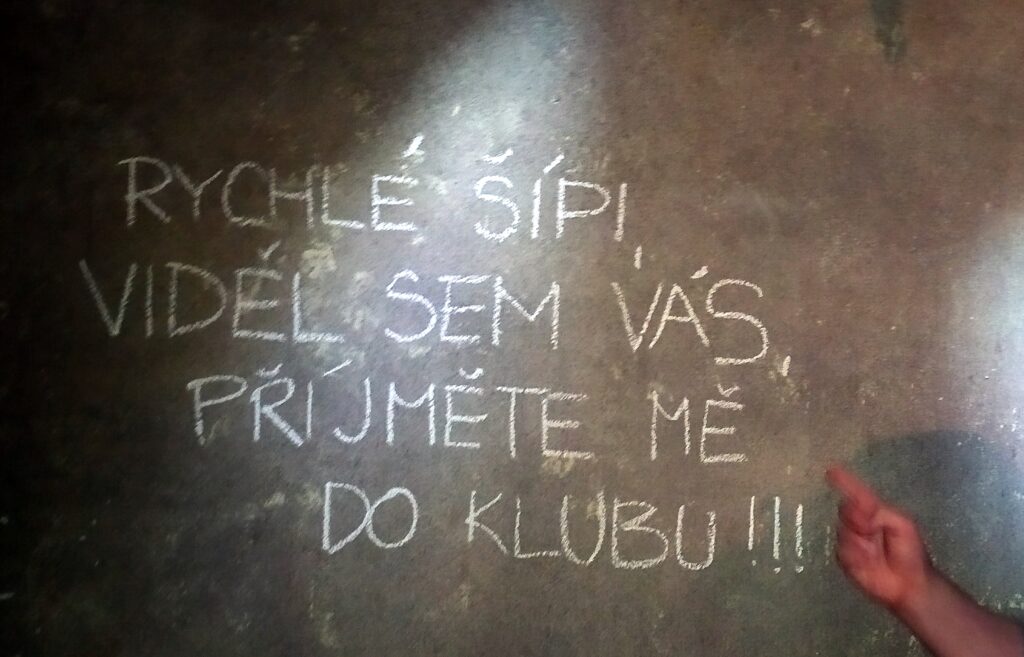 RYCHLÉ ŠÍPI,
VIDĚL SEM VÁS,
PŘÍJMĚTE MĚ
DO KLUBU !!!